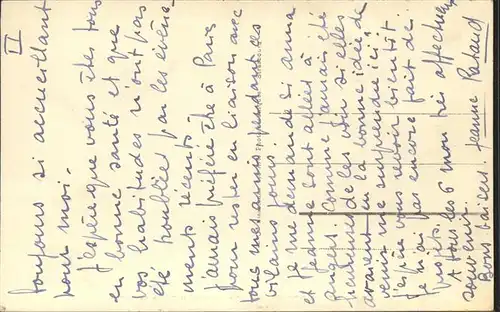 II
toujours si accueillant
pour moi.
J'espère que vous êtes tous
en bonne santé et que
vos habitudes n'ont pas
été troublées par les événe-
ments récents.
J'aurais préféré être à Paris
pour rester en liaison avec
tous mes amis pendant ces
vilains jours.
Je me demande si Anna
et Jeanne sont allées à
Angers. Comme j'aurais été
heureuse de les voir si elles
avaient eu la bonne idée de
venir me surprendre ici?
J'espère vous revoir bientôt
Je n'ai pas encore fait de
projets.
A tous les 6 mon très affectueux
souvenir.
Bons baisers. Jeanne